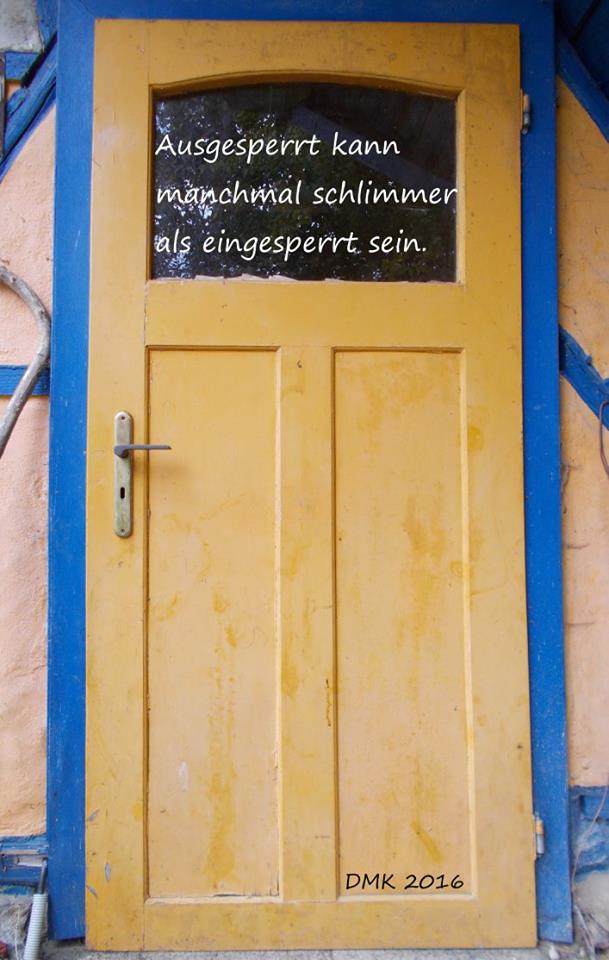 Ausgesperrt kann
manchmal schlimmer
als eingesperrt sein.
DMK 2016